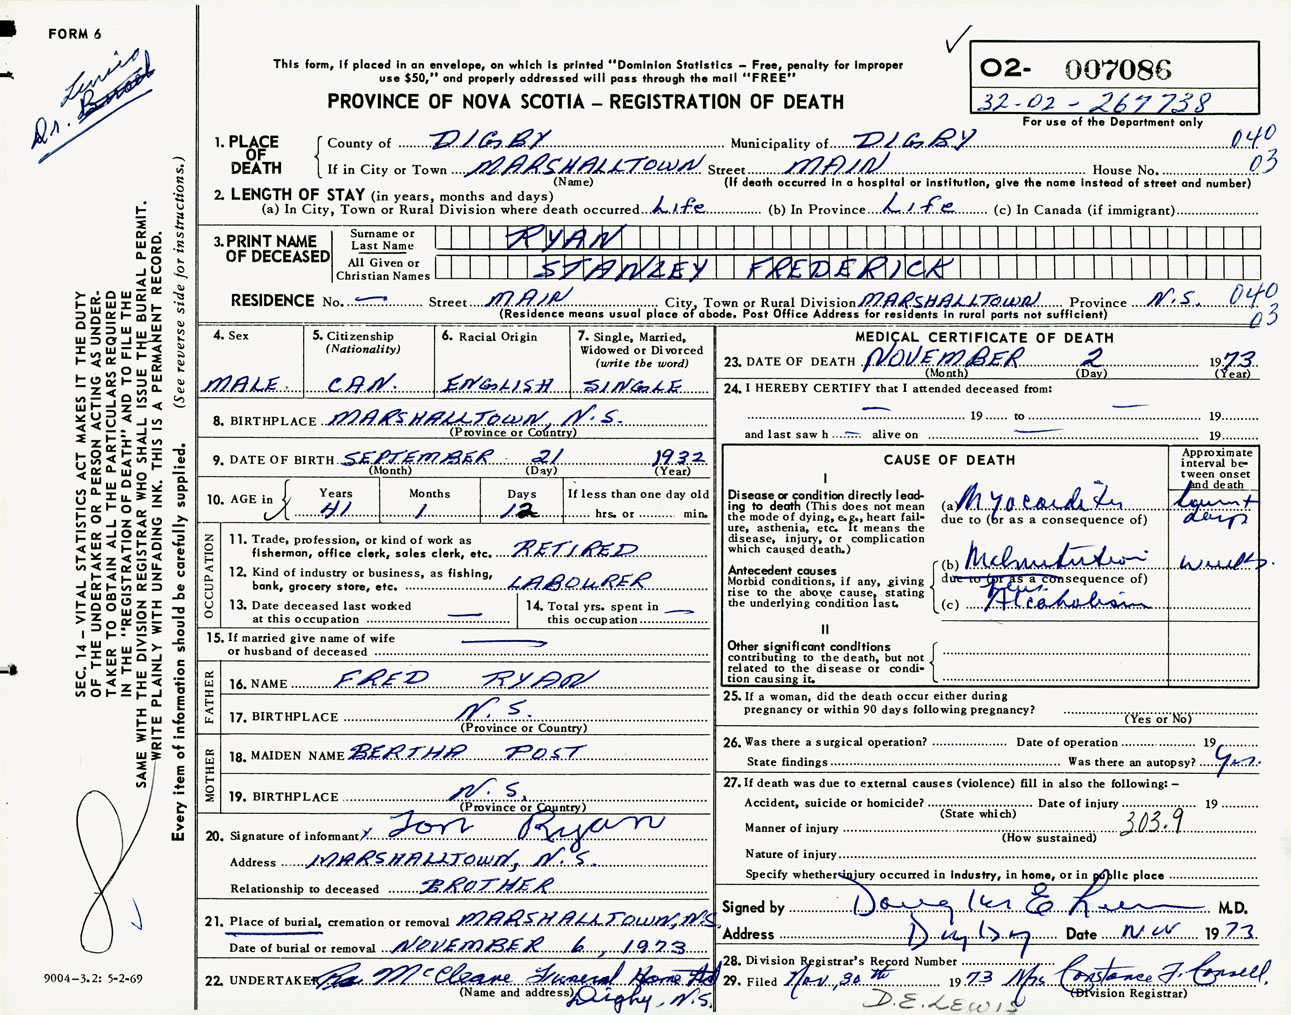 FORM 6
Dr. Lewis
This form, if placed in an envelope, on which is printed "Dominion Statistics – Free, penalty for improper
use $50," and properly addressed will pass through the mail "FREE"
PROVINCE OF NOVA SCOTIA – REGISTRATION OF DEATH
02- 007086
32-02-267738
For use of the Department only
1. PLACE OF DEATH
County of DIGBY Municipality of DIGBY 040
If in City or Town MARSHALLTOWN Street MAIN House No. 03
(Name) (If death occurred in a hospital or institution, give the name instead of street and number)
2. LENGTH OF STAY (in years, months and days)
(a) In City, Town or Rural Division where death occurred Life (b) In Province Life (c) In Canada (if immigrant)
3. PRINT NAME OF DECEASED
Surname or Last Name RYAN
All Given or Christian Names STANLEY FREDERICK
RESIDENCE No. — Street MAIN City, Town or Rural Division MARSHALLTOWN Province N.S. 040
(Residence means usual place of abode. Post Office Address for residents in rural parts not sufficient) 03
4. Sex
MALE
5. Citizenship
(Nationality)
CAN.
6. Racial Origin
ENGLISH
7. Single, Married,
Widowed or Divorced
(write the word)
SINGLE
8. BIRTHPLACE MARSHALLTOWN, N.S.
(Province or Country)
9. DATE OF BIRTH SEPTEMBER 21 1932
(Month) (Day) (Year)
10. AGE in
Years Months Days If less than one day old
41 1 12 hrs. or min.
OCCUPATION
11. Trade, profession, or kind of work as
fisherman, office clerk, sales clerk, etc. RETIRED
12. Kind of industry or business, as fishing,
bank, grocery store, etc. LABOURER
13. Date deceased last worked
at this occupation —
14. Total yrs. spent in
this occupation —
15. If married give name of wife
or husband of deceased —
FATHER
16. NAME FRED RYAN
17. BIRTHPLACE N.S.
(Province or Country)
MOTHER
18. MAIDEN NAME BERTHA POST
19. BIRTHPLACE N.S.
(Province or Country)
20. Signature of informant x Ryan
Address MARSHALLTOWN, N.S.
Relationship to deceased BROTHER
21. Place of burial, cremation or removal MARSHALLTOWN, N.S.
Date of burial or removal NOVEMBER 6, 1973
22. UNDERTAKER McCleave Funeral Home Ltd
(Name and address) Digby, N.S.
MEDICAL CERTIFICATE OF DEATH
23. DATE OF DEATH NOVEMBER 2 1973
(Month) (Day) (Year)
24. I HEREBY CERTIFY that I attended deceased from:
— 19 to — 19
and last saw h — alive on — 19
CAUSE OF DEATH
Approximate
interval be-
tween onset
and death
I
Disease or condition directly lead-
ing to death (This does not mean
the mode of dying, e.g., heart fail-
ure, asthenia, etc. It means the
disease, injury, or complication
which caused death.)
(a) Myocarditis
due to (or as a consequence of)
days
Antecedent causes
Morbid conditions, if any, giving
rise to the above cause, stating
the underlying condition last.
(b) Malnutrition weeks.
due to (or as a consequence of)
plus
(c) Alcoholism
II
Other significant conditions
contributing to the death, but not
related to the disease or condi-
tion causing it.
25. If a woman, did the death occur either during
pregnancy or within 90 days following pregnancy?
(Yes or No)
26. Was there a surgical operation? Date of operation 19
State findings Was there an autopsy? Yes.
27. If death was due to external causes (violence) fill in also the following: –
Accident, suicide or homicide? Date of injury 19
(State which)
Manner of injury 303.9
(How sustained)
Nature of injury
Specify whether injury occurred in industry, in home, or in public place
Signed by Douglas E Lewis M.D.
Address Digby Date Nov 1973
28. Division Registrar's Record Number
29. Filed Nov. 30th 1973 Mrs Constance F.
(Division Registrar)
D.E. LEWIS
SEC. 14 – VITAL STATISTICS ACT MAKES IT THE DUTY
OF THE UNDERTAKER OR PERSON ACTING AS UNDER-
TAKER TO OBTAIN ALL THE PARTICULARS REQUIRED
IN THE "REGISTRATION OF DEATH" AND TO FILE THE
SAME WITH THE DIVISION REGISTRAR WHO SHALL ISSUE THE BURIAL PERMIT.
WRITE PLAINLY WITH UNFADING INK. THIS IS A PERMANENT RECORD.
Every item of information should be carefully supplied. (See reverse side for instructions.)
9004-3.2: 5-2-69